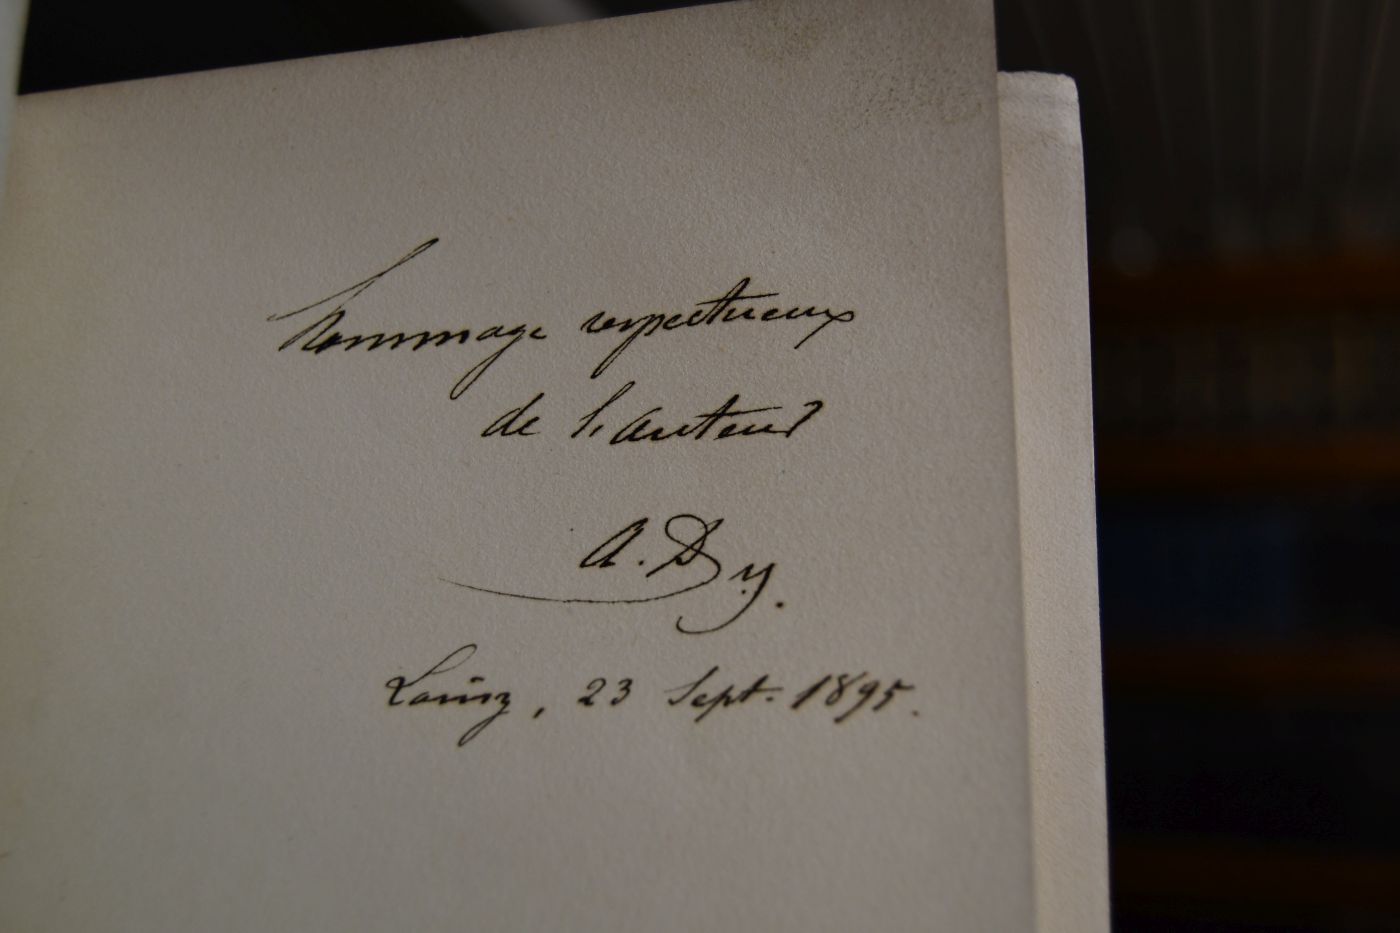 hommage respectueux
de l'auteur
A. Dy.
23 Sept. 1895.